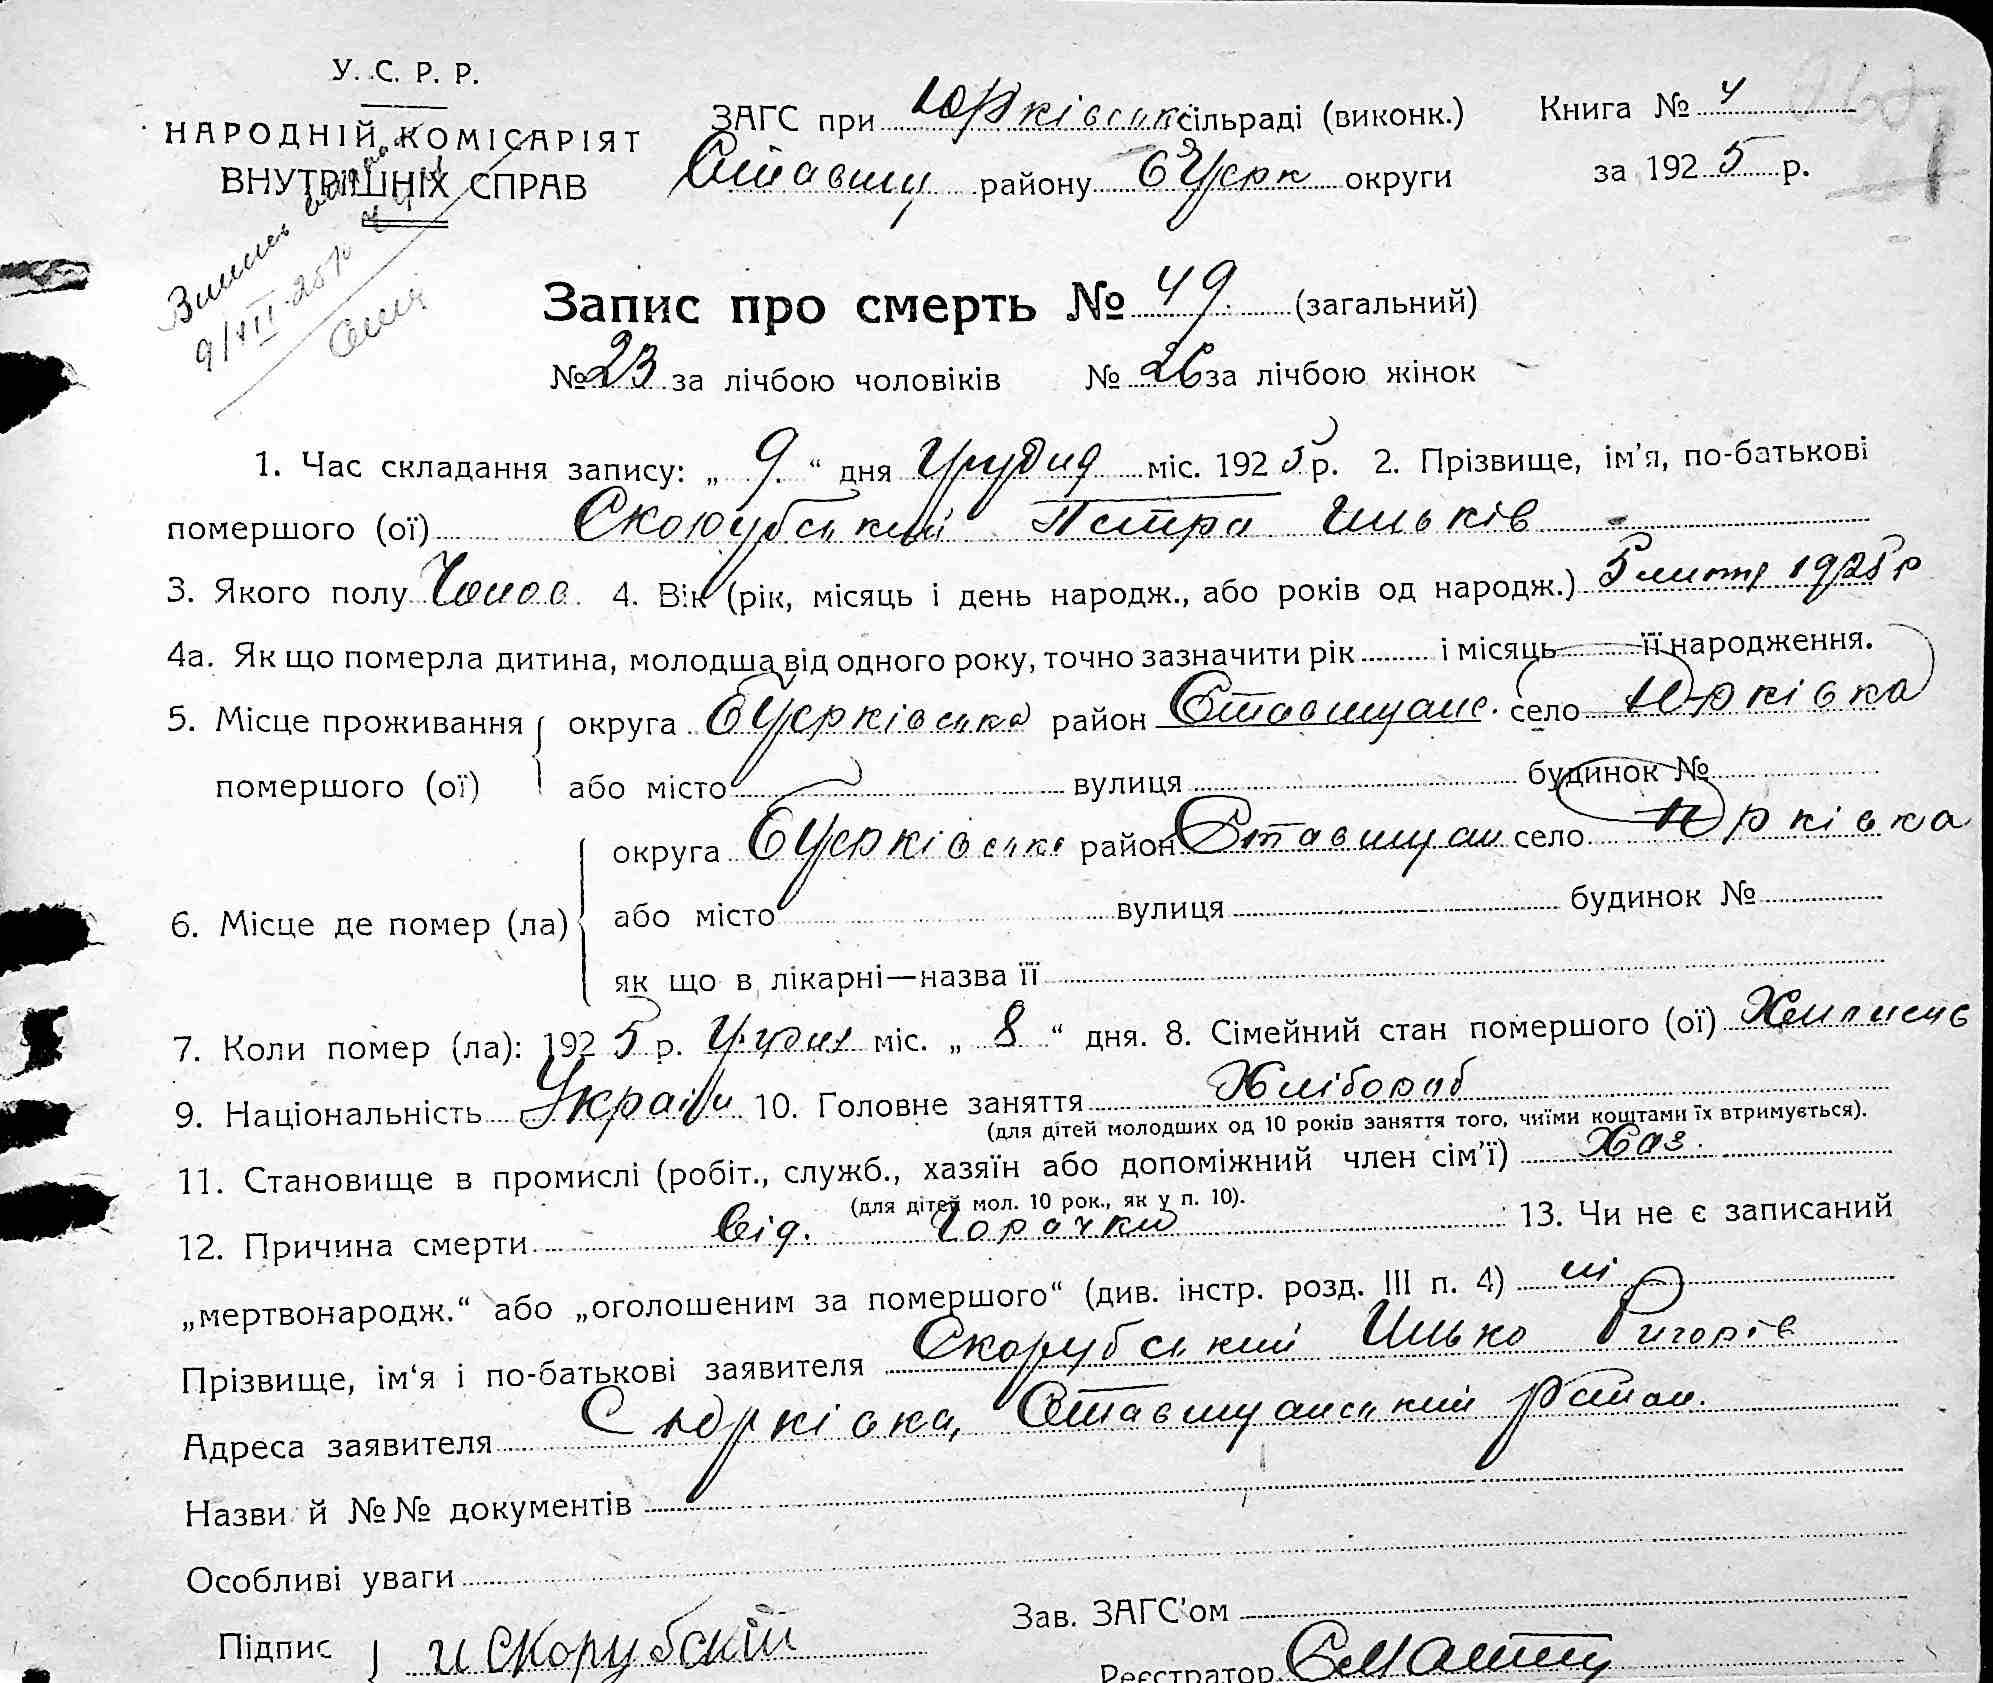 У. С. Р. Р.
НАРОДНІЙ КОМІСАРІЯТ
ВНУТРІШНІХ СПРАВ
ЗАГС при Юрківськ сільраді (виконк.) Книга № 4
Ставищ району БЦерк округи за 1925 р.
Запис про смерть № 49 (загальний)
№ 23 за лічбою чоловіків № 26 за лічбою жінок
1. Час складання запису: „ 9 “ дня Грудня міс. 1925 р. 2. Прізвище, ім’я, по-батькові
помершого (ої) Скорубський Петра Ильків
3. Якого полу Чолов 4. Вік (рік, місяць і день народж., або років од народж.) 5 лютня 1925 р
4а. Як що померла дитина, молодша від одного року, точно зазначити рік і місяць її народження.
5. Місце проживання округа БЦерківська район Ставищанс. село Юрківка
помершого (ої) або місто вулиця будинок №
округа БЦерківськ район Ставищан село Юрківка
6. Місце де помер (ла) або місто вулиця будинок №
як що в лікарні—назва її
7. Коли помер (ла): 1925 р. Грудня міс. „ 8 “ дня. 8. Сімейний стан помершого (ої)
9. Національність Україн 10. Головне заняття Хлібороб
(для дітей молодших од 10 років заняття того, чиїми коштами їх втримується).
11. Становище в промислі (робіт., служб., хазяїн або допоміжний член сім’ї) Хаз.
(для дітей мол. 10 рок., як у п. 10).
12. Причина смерти від. Горачки 13. Чи не є записаний
„мертвонародж.“ або „оголошеним за помершого“ (див. інстр. розд. III п. 4) ні
Прізвище, ім‘я і по-батькові заявителя Скорубський Илько Григорів
Адреса заявителя С Юрківка, Ставищанський район.
Назви й №№ документів
Особливі уваги
Зав. ЗАГС’ом
Підпис И Скорубский
Реєстратор